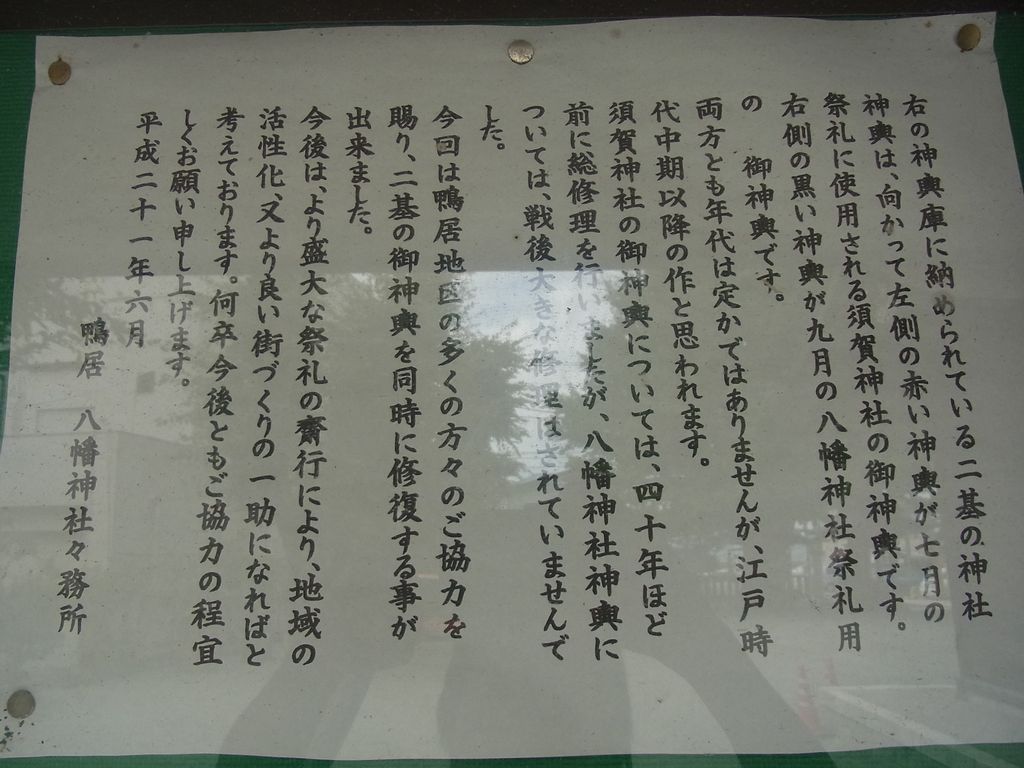 右の神輿庫に納められている二基の神社
神輿は、向かって左側の赤い神輿が七月の
祭礼に使用される須賀神社の御神輿です。
右側の黒い神輿が九月の八幡神社祭礼用
の　御神輿です。
両方とも年代は定かではありませんが、江戸時
代中期以降の作と思われます。
須賀神社の御神輿については、四十年ほど
前に総修理を行いましたが、八幡神社神輿に
ついては、戦後大きな修理はされていませんで
した。
今回は鴨居地区の多くの方々のご協力を
賜り、二基の御神輿を同時に修復する事が
出来ました。
今後は、より盛大な祭礼の齋行により、地域の
活性化、又より良い街づくりの一助になればと
考えております。何卒今後ともご協力の程宜
しくお願い申し上げます。
平成二十一年六月
鴨居　八幡神社々務所